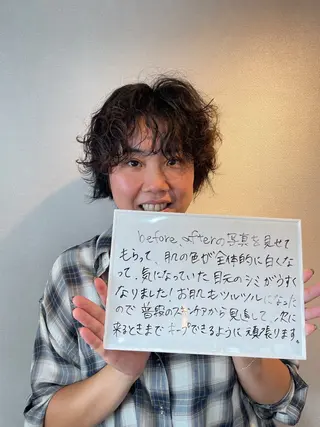 before, afterの写真を見せて
もらって、肌の色が全体的に白くな
って、気になっていた目元のシミがうすく
なりました！お肌もツルツルになった
ので普段のスキンケアから見直して、次に
来るときまでキープできるように頑張ります。